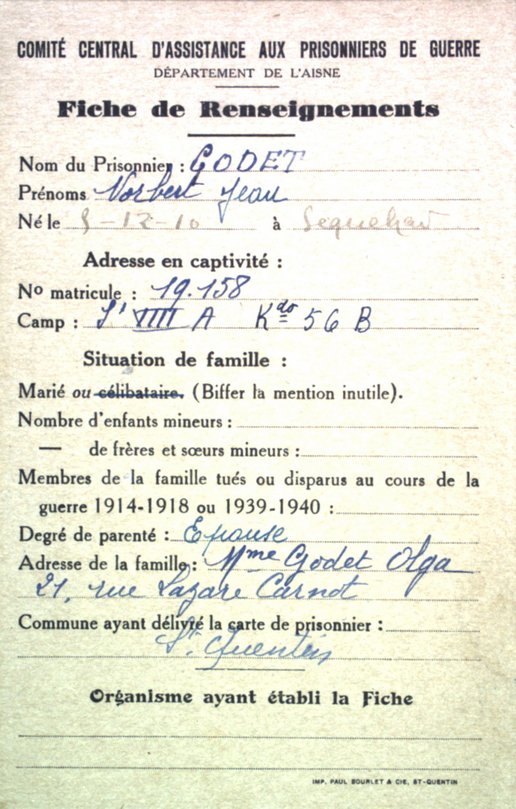 COMITÉ CENTRAL D'ASSISTANCE AUX PRISONNIERS DE GUERRE
DÉPARTEMENT DE L'AISNE
Fiche de Renseignements
Nom du Prisonnier : GODET
Prénoms Norbert Jean
Né le 9-12-10 à Sequehart
Adresse en captivité :
No matricule : 19.158
Camp : St VIII A Kdo 56 B
Situation de famille :
Marié ou célibataire. (Biffer la mention inutile).
Nombre d'enfants mineurs :
— de frères et sœurs mineurs :
Membres de la famille tués ou disparus au cours de la
guerre 1914-1918 ou 1939-1940 :
Degré de parenté : Epouse
Adresse de la famille : Mme Godet Olga
21, rue Lazare Carnot
Commune ayant délivré la carte de prisonnier :
St. Quentin
Organisme ayant établi la Fiche
IMP. PAUL BOURLET & CIE, ST-QUENTIN